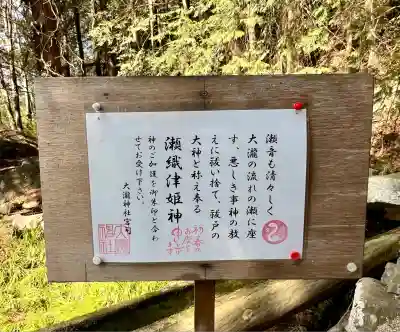 瀬音も清々しく
大瀧の流れの瀬に座
す、悪しき事神の教
えに祓い捨て、祓戸の
大神と称え奉る
瀬織津姫神
神のご加護を御朱印と合わ
せてお受け下さい。
大瀧神社宮司